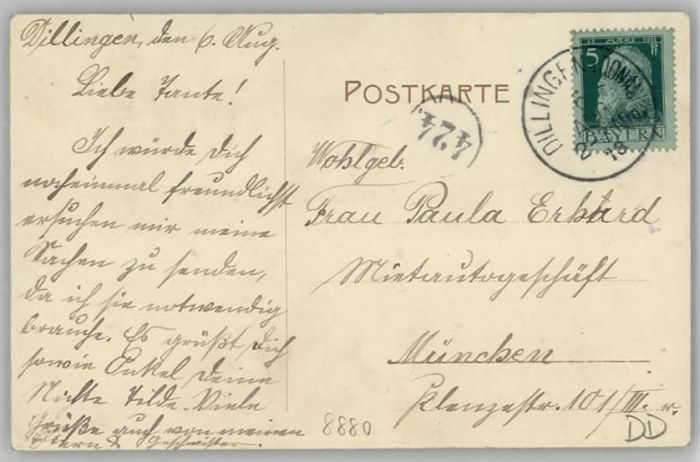 Dillingen, den 6. Aug.
Liebe Tante!
Ich würde Dich
nocheinmal freundlichst
ersuchen mir meine
Sachen zu senden,
da ich sie notwendig
brauche. Es grüßt Dich
sowie Onkel Deine
Nichte Tilde. Viele
Grüße auch von meinen
Eltern & Geschwister.
POSTKARTE
424
5
BAYERN
DILLINGEN (DONAU)
Wohlgeb.
Frau Paula Erhard
Mietautogeschäft
München
Klenzestr. 101/III. r.
8880
DD